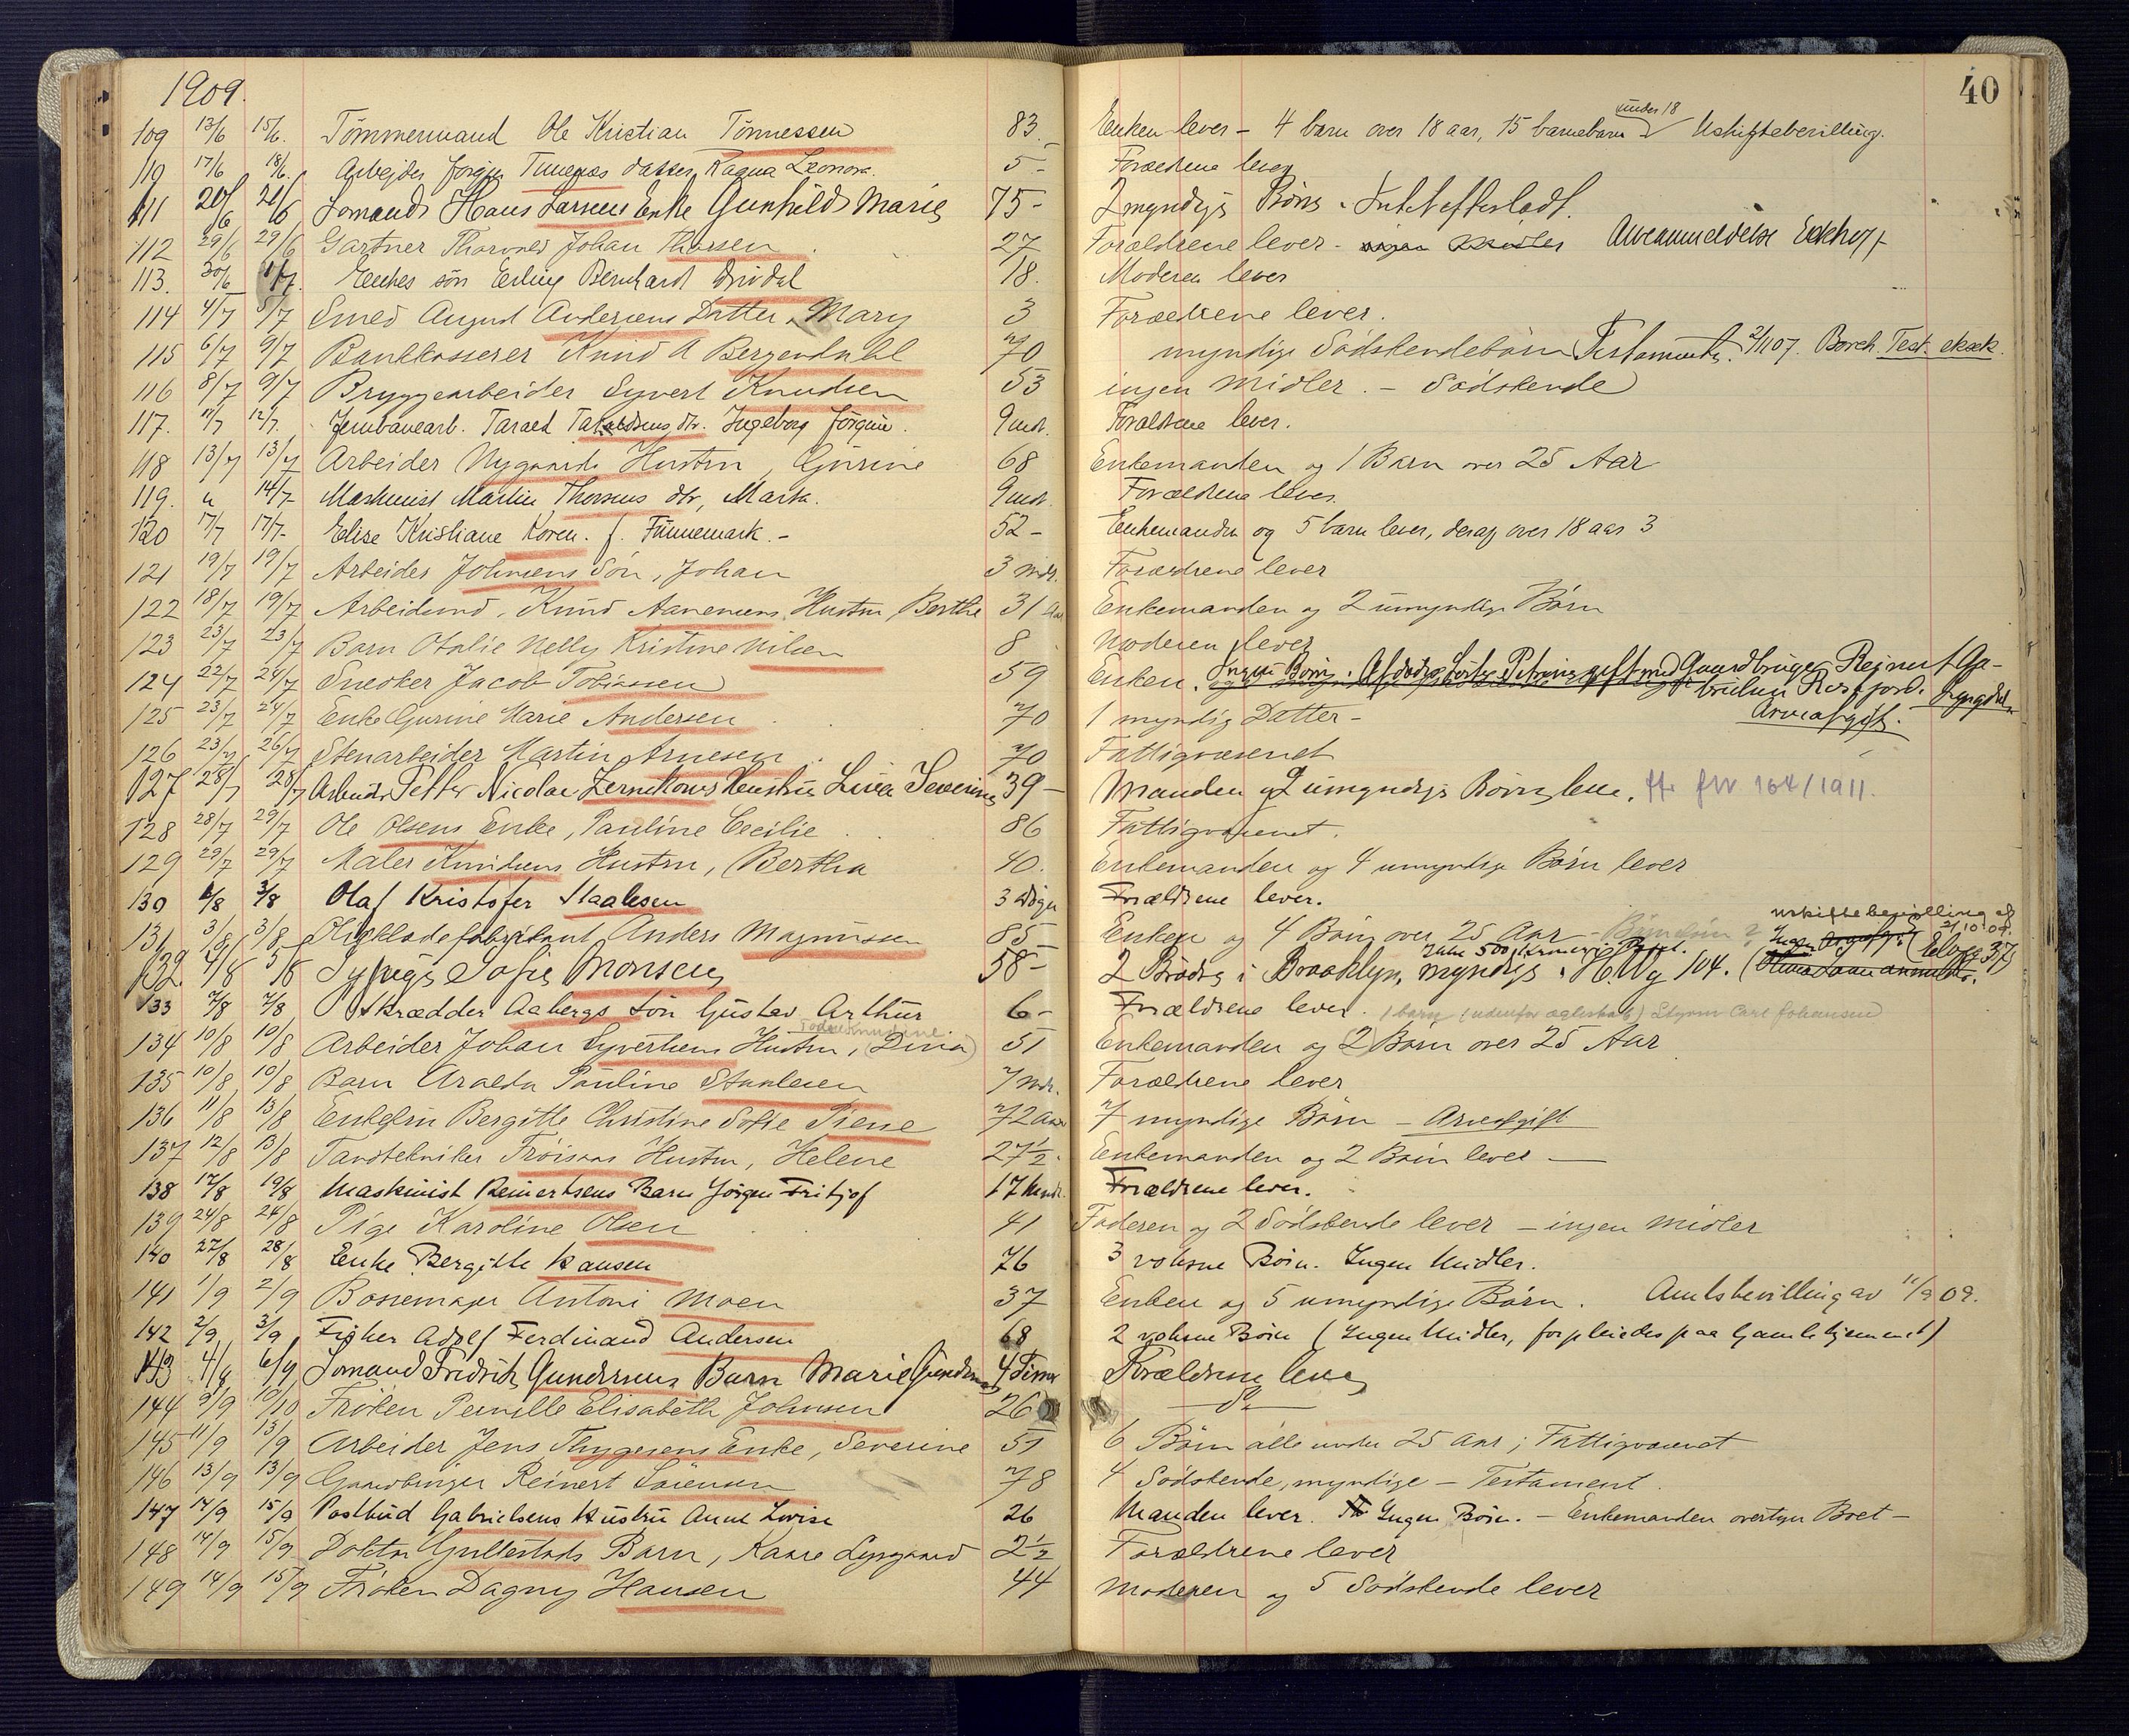 1909.
40
109 13/6 15/6. Tömmermand Ole Kristian Tönnessen 83. Enken lever - 4 barn over 18 aar, 15 barnebarn under 18 Uskiftebevilling.
110 17/6 18/6. Arbejder Jörgen datter, Ragna Leonora. 5- Forældrene lever
111 20/6 21/6 Somand Hans Larsens Enke Gunhild Marie 75- 2 myndige Börn. Intet efterladt.
112 29/6 29/6 Gartner Thorvald Johan Thorsen 27 Forældrene lever - Arveanmeldelse Eckhoff
113. 30/6 1/7. Enkes sön Erling Bernhard Drivdal 18. Moderen lever
114 4/7 5/7 Smed August Andersens Datter, Mary 3 Forældrene lever.
115 6/7 9/7 Bankkasserer Knud A Bergendahl 70 myndige Södskendebörn Testamente 2/1 07. Borch Test. eksek.
116 8/7 9/7 Bryggearbeider Syvert Knudsen 53 ingen midler. - Södskende
117. 11/7 12/7. Jernbanearb. Tarald Taraldsens dtr. Ingeborg Jörgine. 9 mdr. Forældrene lever.
118 13/7 13/7 Arbeider Nygaards Hustru, Gurine 68 Enkemanden og 1 Barn over 25 Aar
119. " 14/7 Maskinist Martin Thorsens dtr, Marta. 9 mdr. Forældrene lever.
120 17/7 17/7- Elise Kristiane Koren. f. Finnemark. - 52- Enkemanden og 5 barn lever, deraf over 18 aar 3
121 19/7 19/7 Arbeider Johnsens Sön, Johan 3 mdr. Forældrene lever
122 18/7 19/7 Arbeidsmd. Knud Aanensens Hustru, Berthe 31 Aar Enkemanden og 2 umyndige Börn
123 23/7 23/7 Barn Otalie Nelly Kristine Nilsen 8 Moderen lever
124 22/7 24/7 Snedker Jacob Tobiassen 59 Enken. Ingen Börn. Afdödes Söster Petrine gift med Gaardbruger Rejnert Ga-
brielsen Rosfjord. Lyngdal
125 23/7 24/7 Enke Gurine Marie Andersen 70 1 myndig Datter - Arveafgift.
126 23/7 26/7 Stenarbeider Martin Arnesen 70 Fattigvæsenet
127 28/7 28/7 Arbeider Petter Nicolai Zernikows Hustru Lina Severine 39- Manden og 2 umyndige Börn leve. 164/1911.
128 28/7 29/7 Ole Olsens Enke, Pauline Cecilie 86 Fattigvæsenet.
129 29/7 29/7 Maler Knudsens Hustru, Bertha 40. Enkemanden og 4 umyndige Börn lever
130 3/8 Olaf Kristofer Staalesen 3 Forældrene lever.
131 3/8 3/8 Anders Magnussen 85- Enken og 4 Börn over 25 Aar uskiftebevilling af 2/10.09.
132. 4/8 5/8 Sypige Sofie Monsen 58- 2 Brödre i Brooklyn, myndige
133 7/8 7/8 Skrædder Aabergs Sön Gustav Arthur 6- Forældrene lever. 1 barn (udenfor ægteskab) Styrm Carl Johansen
134 10/8 10/8 Arbeider Johan Syvertsens Hustru, (Dina) 51 Enkemanden og (2) Börn over 25 Aar
135 10/8 10/8 Barn Aralda Pauline Staalesen 7 mdr. Forældrene lever
136 11/8 13/8 Enkefru Bergitte Christine Sofie Piene 72 Aar 7 myndige Börn - Arveafgift
137 12/8 13/8 Tandtekniker Fröisaas Hustru, Helene 27 1/2. Enkemanden og 2 Börn lever -
138 17/8 19/8 Maskinist Reinertsens Barn Jörgen Fritjof 17 mndr. Forældrene lever.
139 24/8 24/8 Pige Karoline Olsen 41 Faderen og 2 Södskende lever - ingen midler
140 27/8 28/8 Enke Bergitte Hansen 76 3 voksne Börn. Ingen Midler.
141 1/9 2/9 Bössemager Antoni Moen 37 Enken og 5 umyndige Börn. Amtsbevilling av 11/9 09.
142 2/9 3/9 Fisker Adolf Ferdinand Andersen 68 2 voksne Börn (Ingen Midler, forpleiedes paa Gamlehjemmet)
143 4/9 6/9 Somand Fredrik Gundersens Barn Marie Gundersen 4 Timer Forældrene lever
144 9/9 10/10 Fröken Pernille Elisabeth Johnsen 26 Do
145 11/9 13/9 Arbeider Jens Thygesens Enke, Severine 51 6 Börn alle under 25 Aar; Fattigvæsenet
146 13/9 13/9 Gaardbruger Reinert Sörensen 78 4 Södskende, myndige - Testament.
147 14/9 15/9 Postbud Gabrielsens Hustru Anne Lovise 26 Manden lever. Ingen Börn. - Enkemanden overtar Boet -
148 14/9 15/9 Doktor Gullestads Barn, Kaare Lysgaard 2 1/2 Forældrene lever
149 14/9 15/9 Fröken Dagny Hansen 44 Moderen og 5 Södskende lever